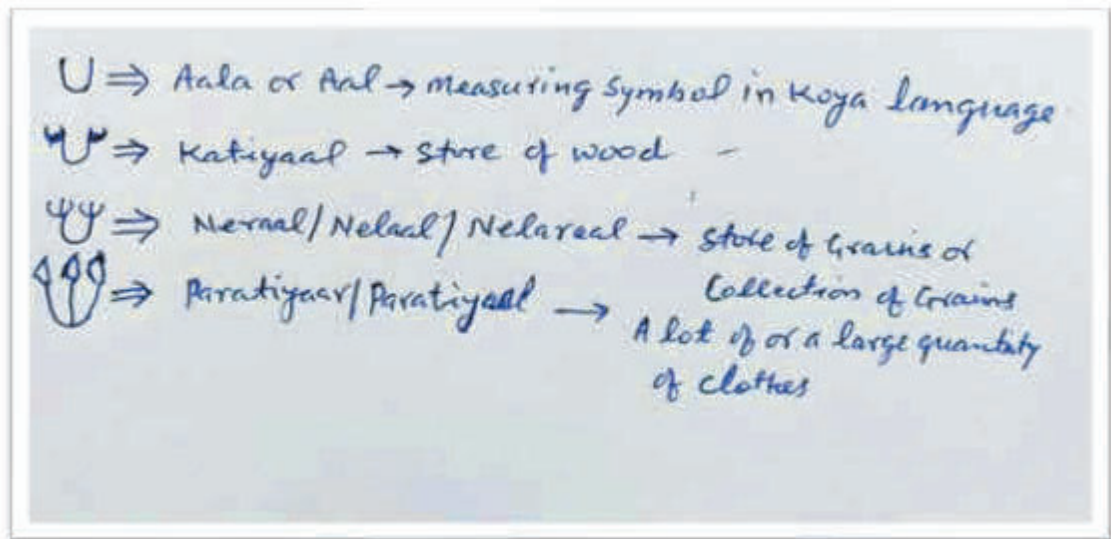 U ⇒ Aala or Aal → Measuring Symbol in Koya language
⇒ Katiyaal → Store of wood –
⇒ Neraal/Nelaal/Nelareal → Store of Grains or
Collection of Grains
⇒ Paratiyaar/Paratiyaal → A lot of or a large quantity
of clothes